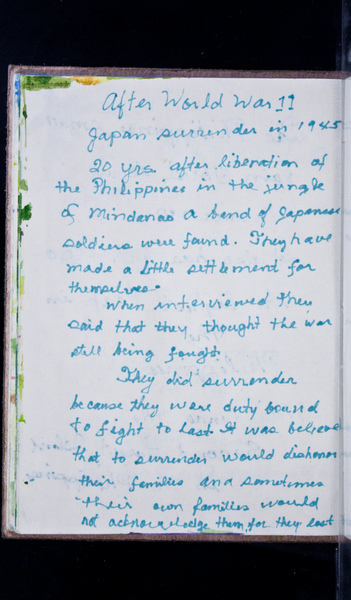 After World War II
Japan surrender in 1945
20 yrs after liberation of
the Philippines in the jungle
of Mindanao a band of Japanese
soldiers were found. They have
made a little settlement for
themselves.
When interviewed they
said that they thought the war
still being fought.
They did surrender
because they were duty bound
to fight to last. It was believe
that to surrender would dishonor
their families and sometimes
their own families would
not acknowledge them, for they lost